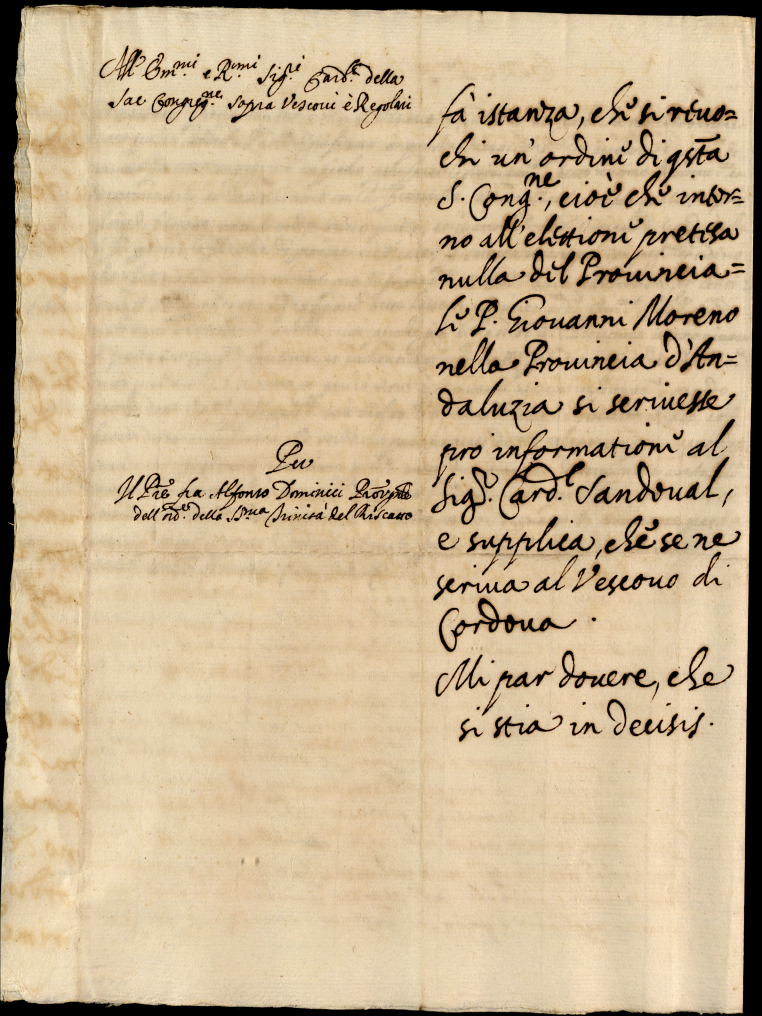 All' Em.mi e R.mi Sig.ri Card.li della
Sac Congreg.ne sopra Vescovi è Regolari
Per
Il Pre fra Alfonso Dominici
dell'Ord.e della SS.ma Trinità del Riscatto
fà istanza, che si reuo=
chi un' ordine di qsta
S. Cong.ne, cioè che intor=
no all' elettione pretesa
nulla del Prouincia=
le P. Giouanni Moreno
nella Prouincia d'An=
daluzia si scriuesse
pro informatione al
Sig.r Card.l Sandoual,
e supplica, che se ne
scriua al Vescouo di
Cordoua.
Mi par douere, che
si stia in decisis.